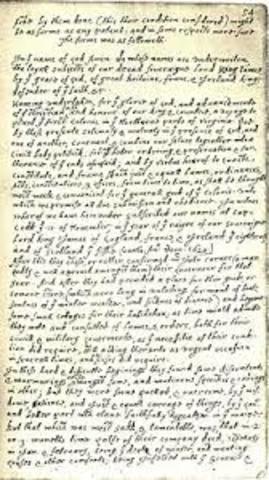 54
by them done (this their condition considered) might
be as firme as any patent; and in some respects more sure.
The forme was as followeth.
In yᵉ name of god Amen. We whose names are underwriten,
the loyall subjects of our dread soveraigne Lord King James
by yᵉ grace of god, of great Britaine, franc, & Ireland king,
defender of yᵉ faith, &c
Haveing undertaken, for yᵉ glorie of god, and advancemente
of yᵉ christian faith and honour of our king & countrie, a voyage to
plant yᵉ first colonie in yᵉ Northerne parts of Virginia. Doe
by these presents solemnly & mutualy in yᵉ presence of god, and
one of another, covenant & combine our selves togeather into a
civill body politick; for our better ordering, & preservation & fur=
therance of yᵉ ends aforesaid; and by vertue hearof to enacte,
constitute, and frame shuch just & equall lawes, ordinances,
Acts, constitutions, & offices, from time to time, as shall be thought
most meete & convenient for yᵉ generall good of yᵉ Colonie: unto
which we promise all due submission and obedience. In witnes
wherof we have hereunder subscribed our names at Cap=
Codd yᵉ 11 of November, in yᵉ year of yᵉ raigne of our soveraigne
Lord king James of England, france, & Ireland yᵉ eighteenth
and of Scotland yᵉ fiftie fourth. An: Dom. 1620
After this they chose, or rather confirmed mr John Carver (a man
godly & well approved amongst them) their Governour for that
year. And after they had provided a place for their goods, or
comone store,
and begune
some small cottages for their habitation; as time would admitte
they mette and consulted of lawes, & orders, both for their
civill & military Governmente, as yᵉ necessitie of their condi=
tion did require, still adding therunto as urgent occasion
in severall times, and as cases did require.
In these hard & difficulte beginings they found some discontents
& murmurings arise amongst some, and mutinous speeches & carriags
in other; but they were soone quelled, & overcome, by yᵉ wis=
dome, patience, and just & equall carrage of things, by yᵉ Govr
and better part wch clave faithfully togeather in yᵉ maine.
But that which was most sadd, & lamentable, was, that in 2
or 3 moneths time halfe of their company dyed, espetialy
in Jan: & february, being yᵉ depth of winter, and wanting
houses & other comforts; being infected with yᵉ scurvie &